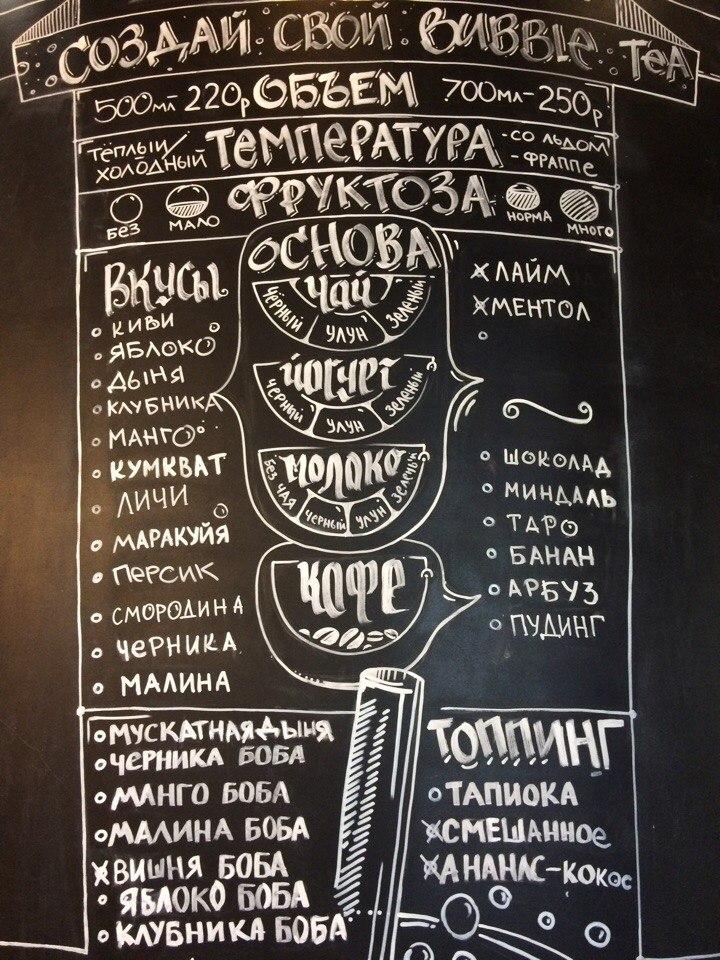 СОЗДАЙ СВОЙ BUBBLE TEA
500мл 220р ОБЪЕМ 700мл-250р
ТЕПЛЫЙ/ХОЛОДНЫЙ ТЕМПЕРАТУРА -СО ЛЬДОМ
-ФРАППЕ
ФРУКТОЗА
БЕЗ МАЛО НОРМА МНОГО
ОСНОВА
ЧАЙ
ЧЕРНЫЙ УЛУН ЗЕЛЕНЫЙ
ЙОГУРТ
ЧЕРНЫЙ УЛУН ЗЕЛЕНЫЙ
МОЛОКО
БЕЗ ЧАЯ ЧЕРНЫЙ УЛУН ЗЕЛЕНЫЙ
КОФЕ
ВКУСЫ
КИВИ
ЯБЛОКО
ДЫНЯ
КЛУБНИКА
МАНГО
КУМКВАТ
ЛИЧИ
МАРАКУЙЯ
ПЕРСИК
СМОРОДИНА
ЧЕРНИКА
МАЛИНА
ЛАЙМ
МЕНТОЛ
ШОКОЛАД
МИНДАЛЬ
ТАРО
БАНАН
АРБУЗ
ПУДИНГ
МУСКАТНАЯ ДЫНЯ
ЧЕРНИКА БОБА
МАНГО БОБА
МАЛИНА БОБА
ВИШНЯ БОБА
ЯБЛОКО БОБА
КЛУБНИКА БОБА
ТОППИНГ
ТАПИОКА
СМЕШАННОЕ
АНАНАС-КОКОС